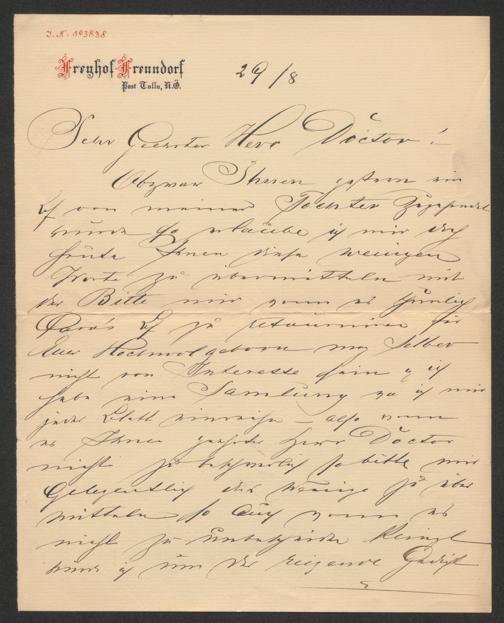 J.N. 193838
Freyhof Freundorf
Post Tulln, N.Ö.
29/8
Sehr Geehrter Herr Doctor!
Obzwar Ihnen gestern ein
von meiner Tochter zugesendet
wurde so erlaube ich mir doch
heute Ihnen diese wenigen
Worte zu übermitteln mit
der Bitte mir wenn es
zu retourniren für
Euer Hochwolgeboren mag selber
nicht von Interesse sein & ich
habe eine Samlung wo ich mir
jedes Blatt einreihe – also wenn
es Ihnen geehrter Herr Doctor
nicht zu beschwerlich so bitte mir
Gelegentlich das Wenige zu über
mitteln so auch wenn es
nicht zu unbescheiden klingt
ich um das reizende Gedicht